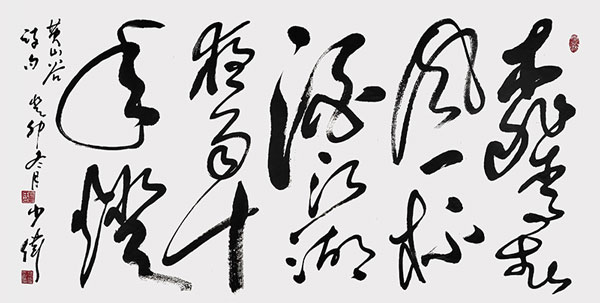 桃李春
風一杯
酒江湖
夜雨十
年燈
黄山谷
詩句 癸卯冬月 少